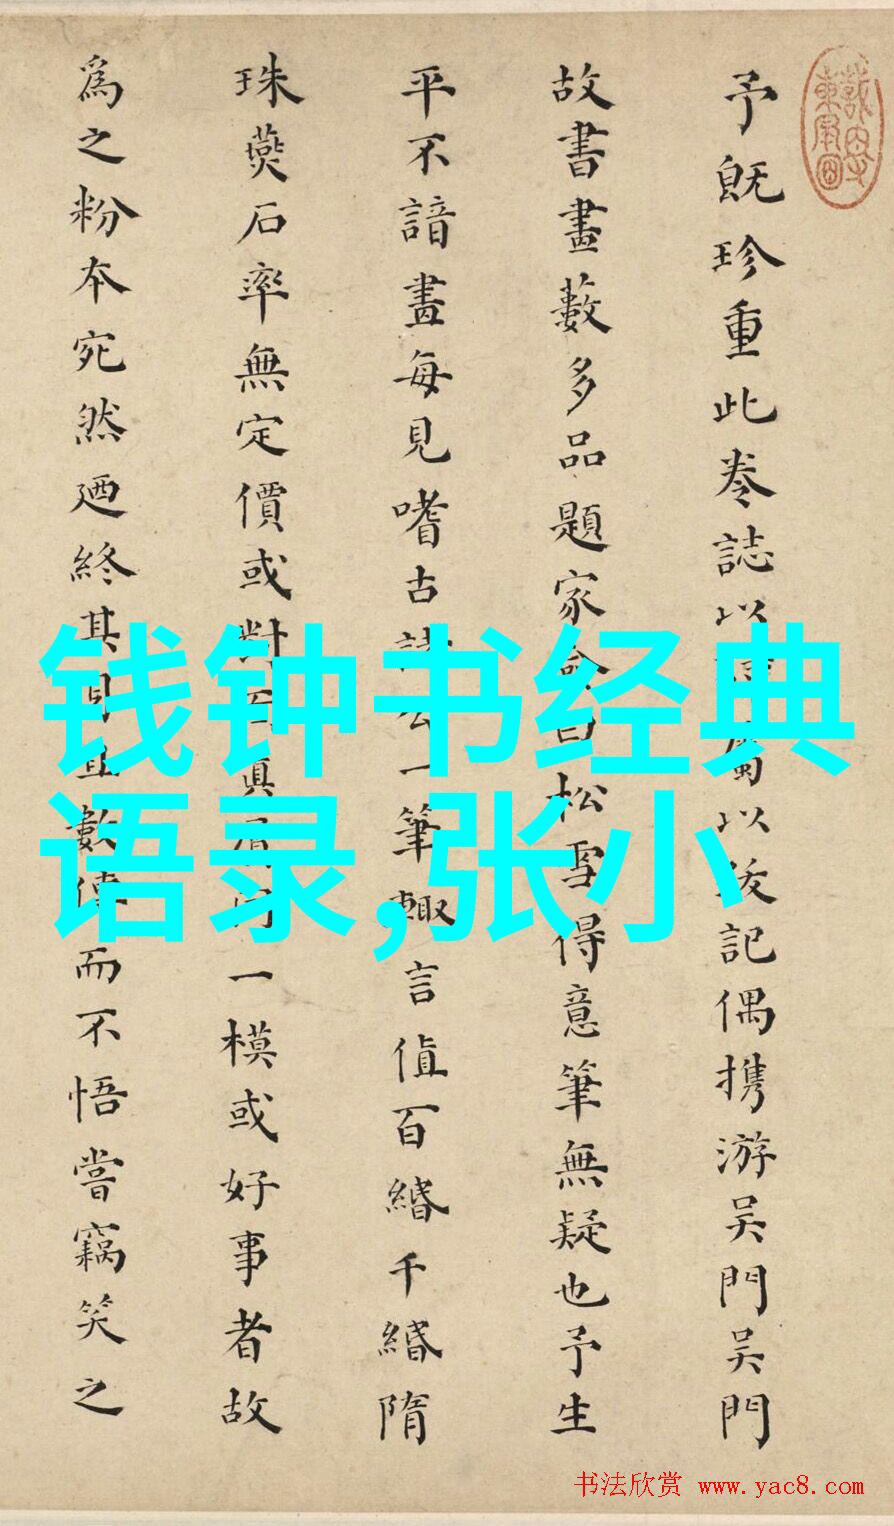 予既珍重此卷誌以 屬以後記偶携游吴門吴門
故書畫藪多品題家僉曰松雪得意筆無疑也予生
平不諳畫每見嗜古諸公一筆輙言值百緡千緡隋
珠燕石率無定價或對 真 一模或好事者故
為之粉本宛然廼終其身且數傳而不悟嘗竊笑之
钱钟书经典
语录,张小
书法欣赏 www.yac8.com